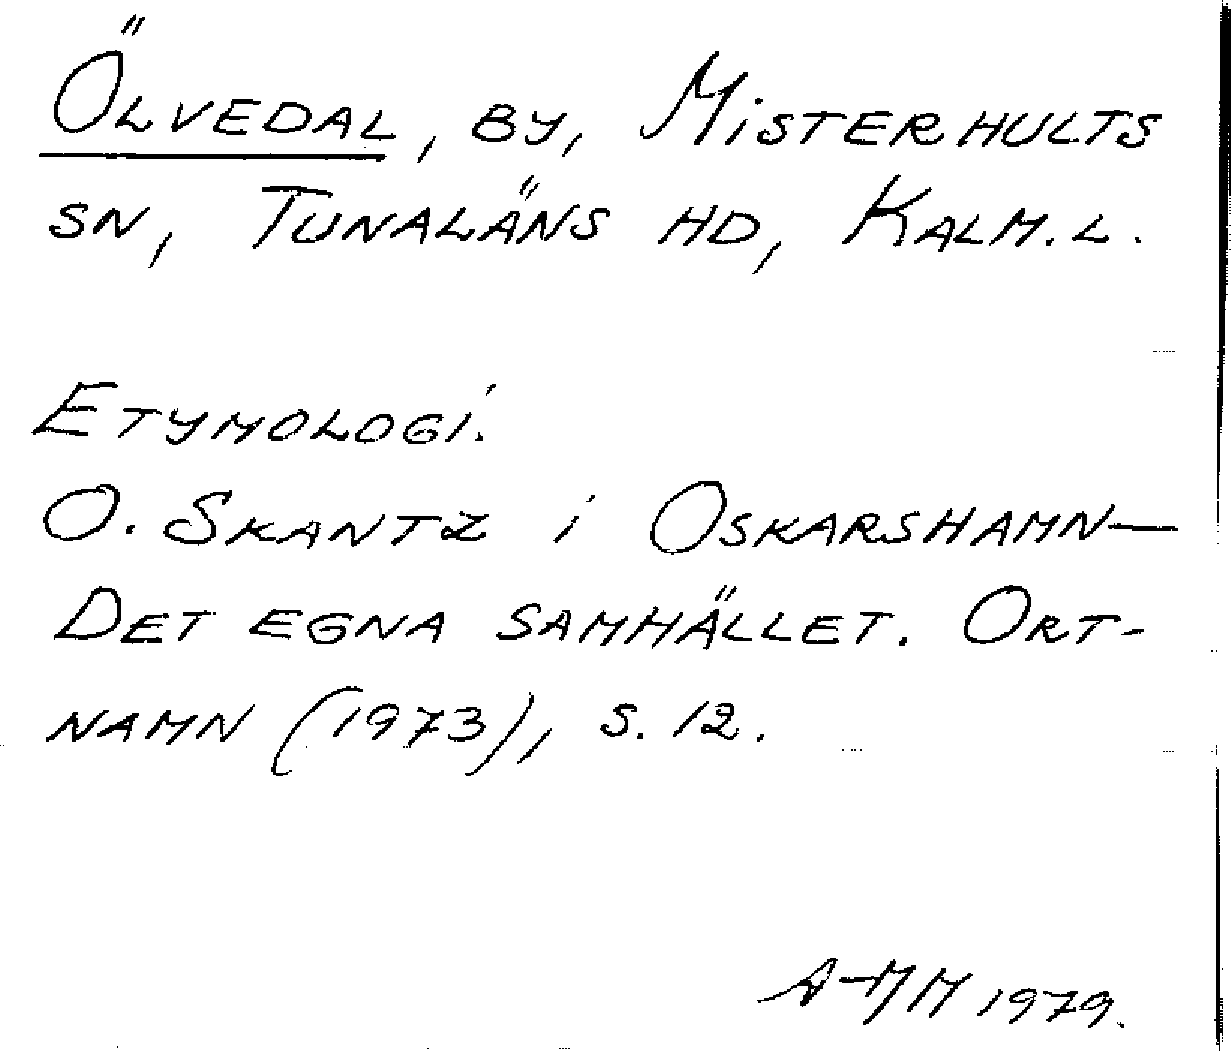 Ölvedal, by, Misterhults
sn, Tunaläns hd, Kalm. l.
Etymologi.
O. Skantz i Oskarshamn—
Det egna samhället. Ort-
namn (1973), s. 12.
A-MM 1979.